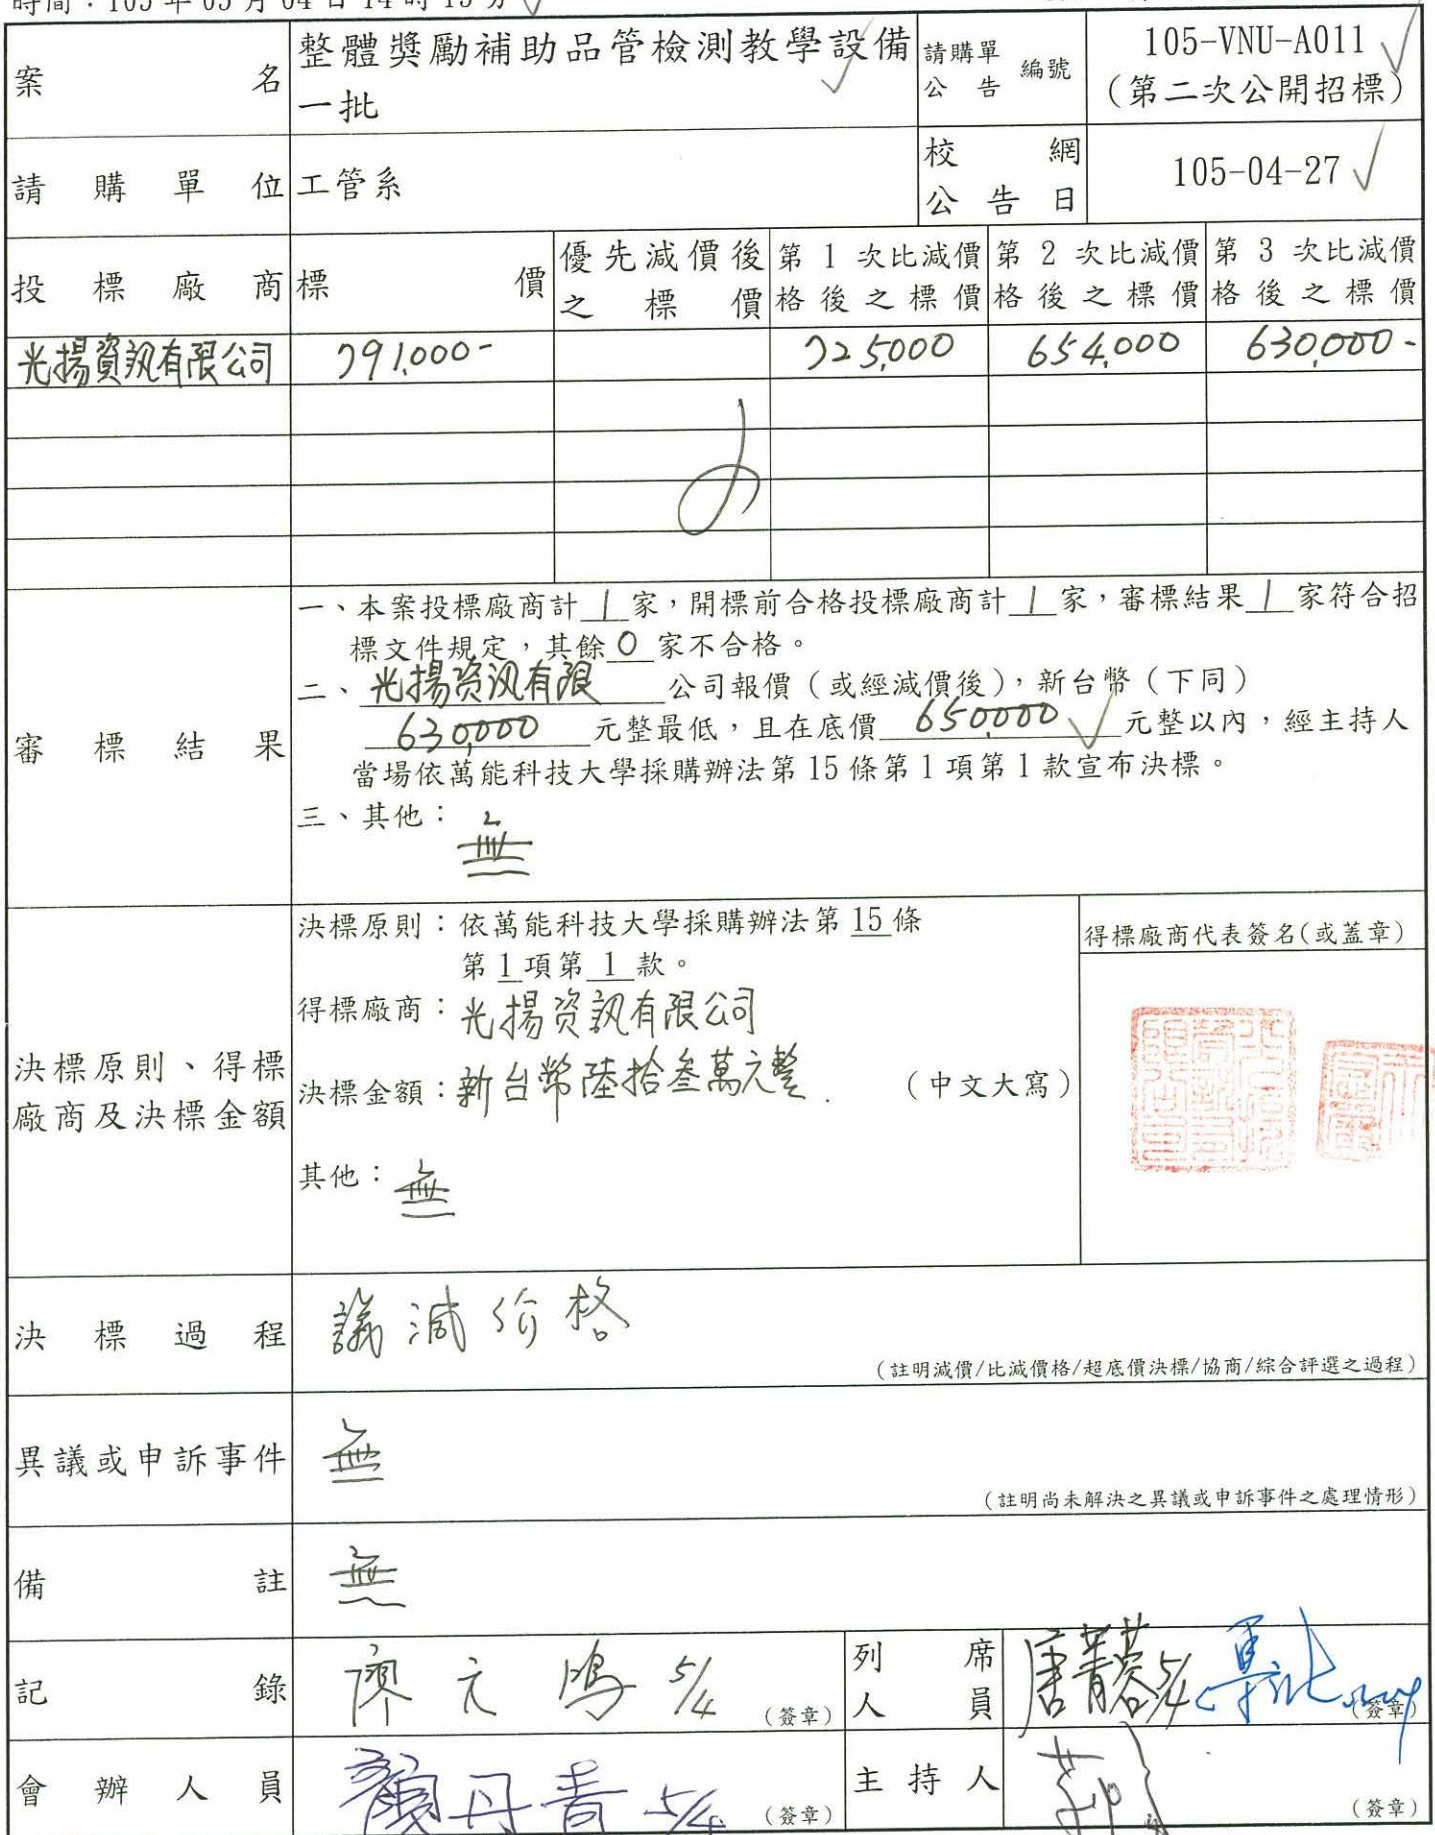 時間：105 年 05 月 04 日 14 時 15 分
案名
整體獎勵補助品管檢測教學設備
一批
請購單
公告
編號
105-VNU-A011
(第二次公開招標)
請購單位
工管系
校網
公告日
105-04-27
投標廠商
標價
優先減價後
之標價
第 1 次比減價
格後之標價
第 2 次比減價
格後之標價
第 3 次比減價
格後之標價
光揚資訊有限公司
791,000-
725,000
654,000
630,000-
審標結果
一、本案投標廠商計 1 家，開標前合格投標廠商計 1 家，審標結果 1 家符合招
標文件規定，其餘 0 家不合格。
二、光揚资汛有限 公司報價（或經減價後），新台幣（下同）
630,000 元整最低，且在底價 650,000 元整以內，經主持人
當場依萬能科技大學採購辦法第 15 條第 1 項第 1 款宣布決標。
三、其他：無
決標原則、得標
廠商及決標金額
決標原則：依萬能科技大學採購辦法第 15 條
第 1 項第 1 款。
得標廠商：光揚资訊有限公司
決標金額：新台幣陸拾叁萬元整. （中文大寫）
其他：無
得標廠商代表簽名(或蓋章)
決標過程
議減价格
（註明減價/比減價格/超底價決標/協商/綜合評選之過程）
異議或申訴事件
無
（註明尚未解決之異議或申訴事件之處理情形）
備註
無
記錄
廖元鴻 5/4
（簽章）
列席
人員
唐菁蓉 5/4
（簽章）
會辦人員
顏丹青 5/4
（簽章）
主持人
（簽章）